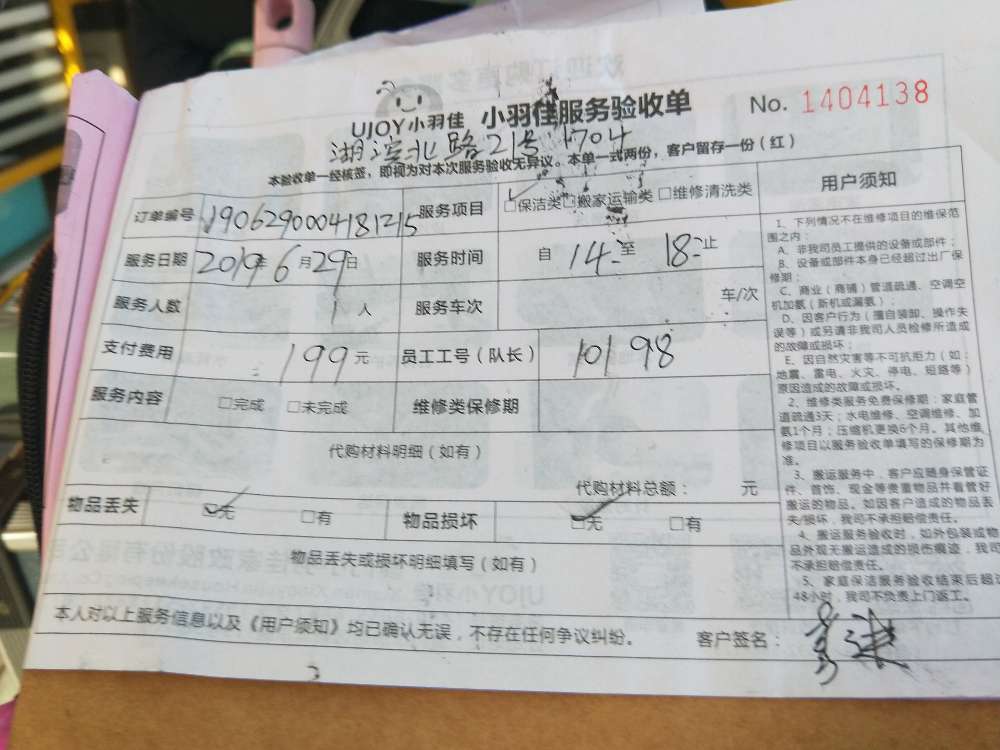 UJOY小羽佳 小羽佳服务验收单 No. 1404138
湖滨北路21号1704
本验收单一经核签，即视为对本次服务验收无异议。本单一式两份，客户留存一份（红）
订单编号 1906290004181215 服务项目 □保洁类 □搬家运输类 □维修清洗类
服务日期 2019年6月29日 服务时间 自 14 至 18 止
服务人数 1人 服务车次 车/次
支付费用 199元 员工工号（队长） 10198
服务内容 □完成 □未完成 维修类保修期
代购材料明细（如有）
代购材料总额： 元
物品丢失 ☑无 □有 物品损坏 ☑无 □有
物品丢失或损坏明细填写（如有）
本人对以上服务信息以及《用户须知》均已确认无误，不存在任何争议纠纷。 客户签名：
用户须知
1、下列情况不在维修项目的维保范
围之内：
A、非我司员工提供的设备或部件；
B、设备或部件本身已经超过出厂保
修期；
C、商业（商铺）管道疏通、空调空
机加氨（新机或漏氨）；
D、因客户行为（擅自装卸、操作失
误等）或另请非我司人员检修所造成
的故障或损坏；
E、因自然灾害等不可抗拒力（如：
地震、雷电、火灾、停电、短路等）
原因造成的故障或损坏。
2、维修类服务免费保修期：家庭管
道疏通3天；水电维修、空调维修、加
氨1个月；压缩机更换6个月。其他维
修项目以服务验收单填写的保修期为
准。
3、搬运服务中，客户应随身保管证
件、首饰、现金等贵重物品并看管好
搬运的物品。如因客户造成的物品丢
失/损坏，我司不承担赔偿责任。
4、搬运服务验收时，如外包装或物
品外观无搬运造成的损伤痕迹，我司
不承担赔偿责任。
5、家庭保洁服务验收结束后超过
48小时，我司不负责上门返工。